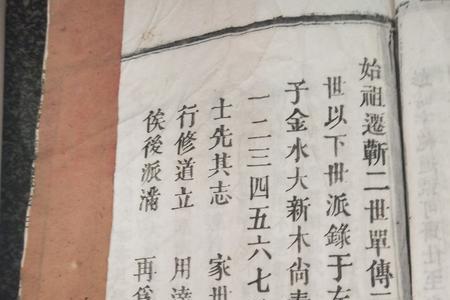 始祖遷蘄二世單傳
世以下世派錄于左
子金水大新木尚
一二三四五六七
士先其志 家世
行修道立 用達
俟後派滿 再爲